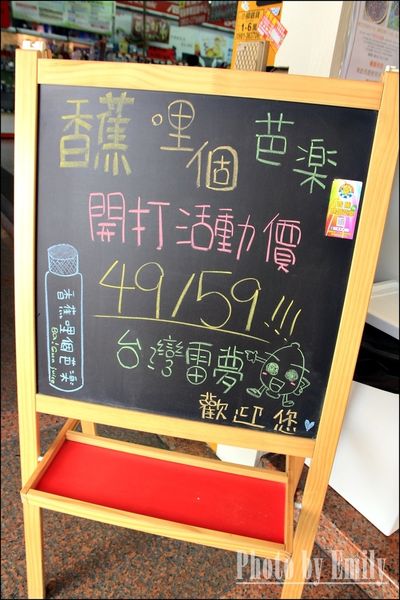 香蕉哩個芭楽
開打活動價
49/59!!!
台灣雷夢
歡迎您
香蕉哩個芭楽
Photo by Emily